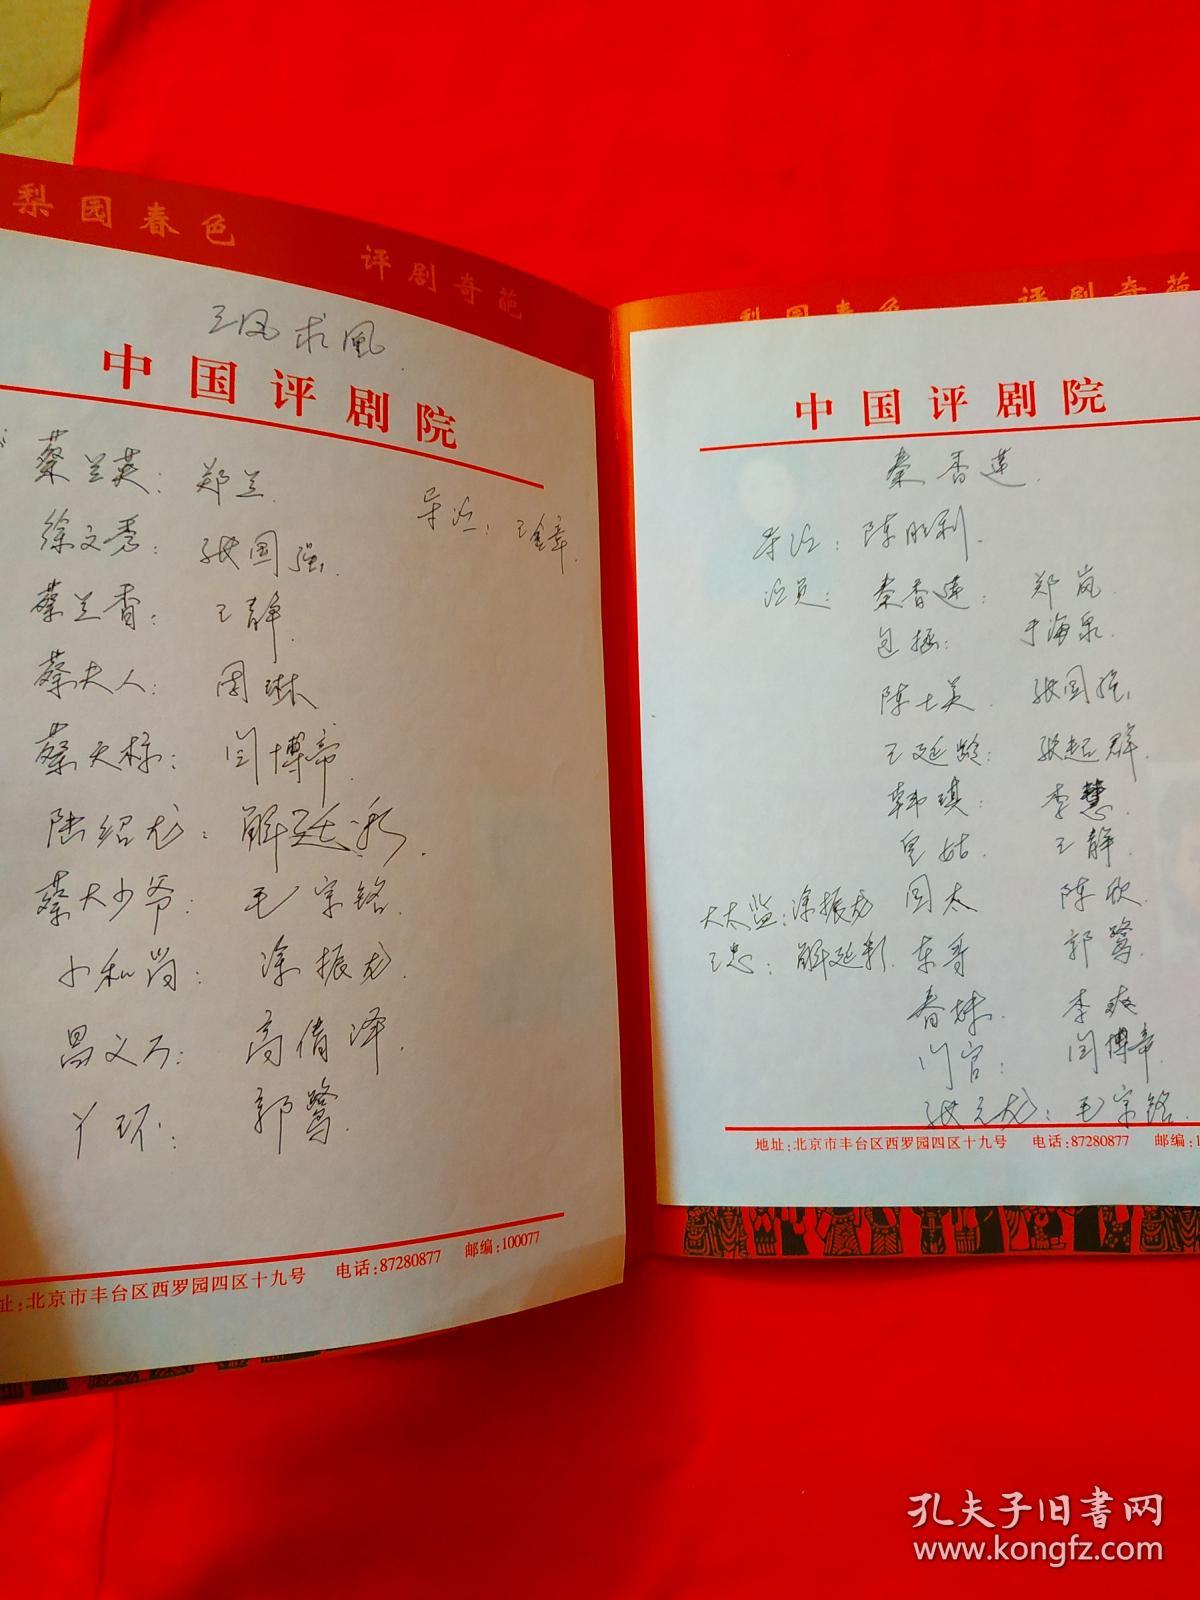 梨园春色 评剧奇葩
三凤求凰
中国评剧院
蔡兰英：郑兰
导演：王金章
徐文秀：张国强
蔡兰香：王静
蔡夫人：周琳
蔡天标：闫博帝
陆绍龙：解延彩
蔡大少爷：毛宗铭
小和尚：涂振龙
高倩泽
丫环：郭鹭
址:北京市丰台区西罗园四区十九号 电话:87280877 邮编:100077
梨园春色 评剧奇葩
中国评剧院
秦香莲
导演：陈胜利
演员：秦香莲：郑岚
包拯：于海泉
陈士美 张国强
王延龄：张超群
韩琪：李慧
皇姑 王静
大太监：涂振龙 国太 陈欣
王忠：解延彩 东哥 郭鹭
春妹 李爽
门官：闫博帝
张元龙：毛宗铭
地址:北京市丰台区西罗园四区十九号 电话:87280877 邮编:1
孔夫子旧书网
www.kongfz.com